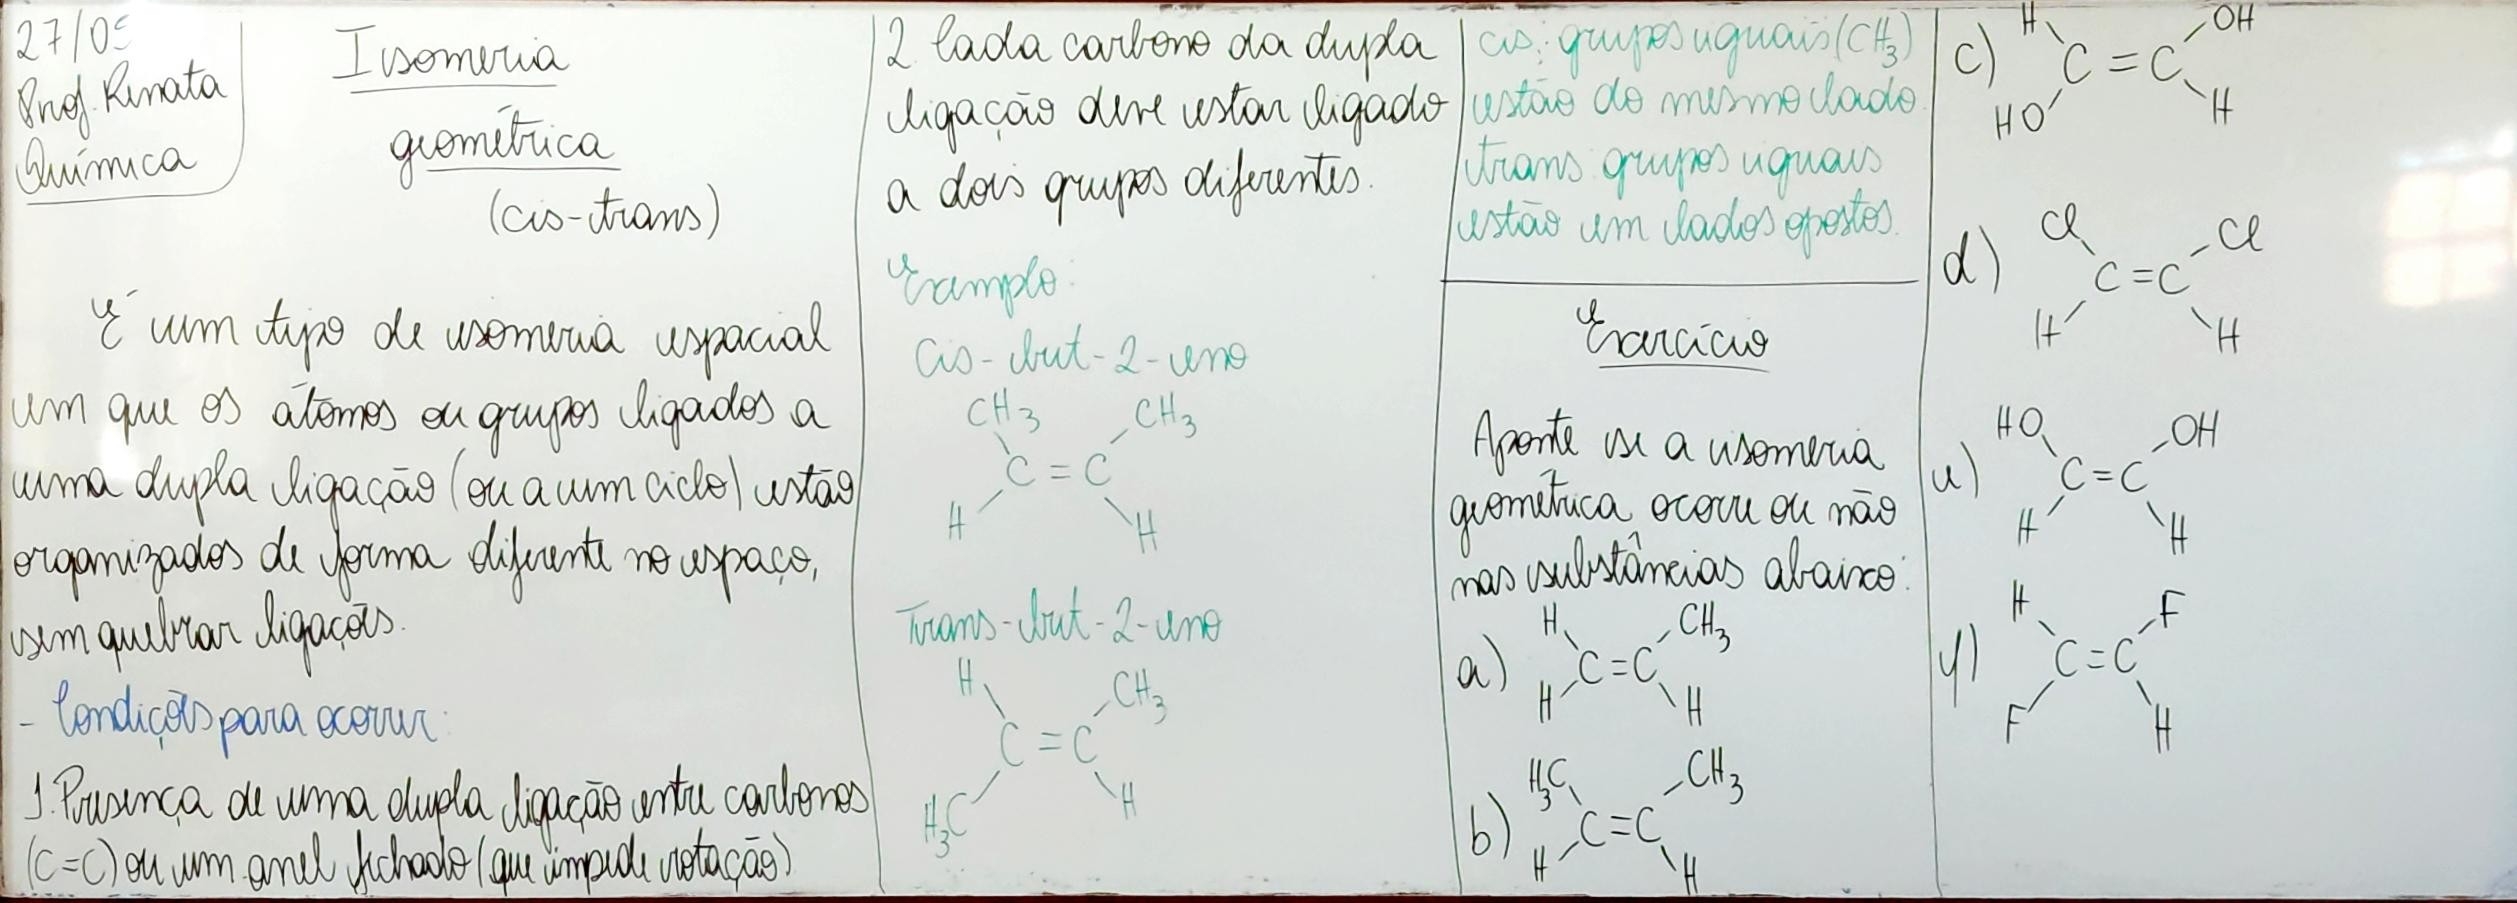 27/05
Prof. Renata
Química
Isomeria
geométrica
(cis-trans)
É um tipo de isomeria espacial
em que os átomos ou grupos ligados a
uma dupla ligação (ou a um ciclo) estão
organizados de forma diferente no espaço,
sem quebrar ligações.
- Condições para ocorrer:
1. Presença de uma dupla ligação entre carbonos
(C=C) ou um anel fechado (que impede rotação)
2. Cada carbono da dupla
ligação deve estar ligado
a dois grupos diferentes.
Exemplo:
Cis-but-2-eno
CH3 CH3
C = C
H H
Trans-but-2-eno
H CH3
C = C
H3C H
cis: grupos iguais (CH3)
estão do mesmo lado.
trans: grupos iguais
estão em lados opostos.
Exercício
Aponte se a isomeria
geométrica ocorre ou não
nas substâncias abaixo:
a) H CH3
C=C
H H
b) H3C CH3
C=C
H H
c) H OH
C=C
HO H
d) Cl Cl
C=C
H H
e) HO OH
C=C
H H
f) H F
C=C
F H